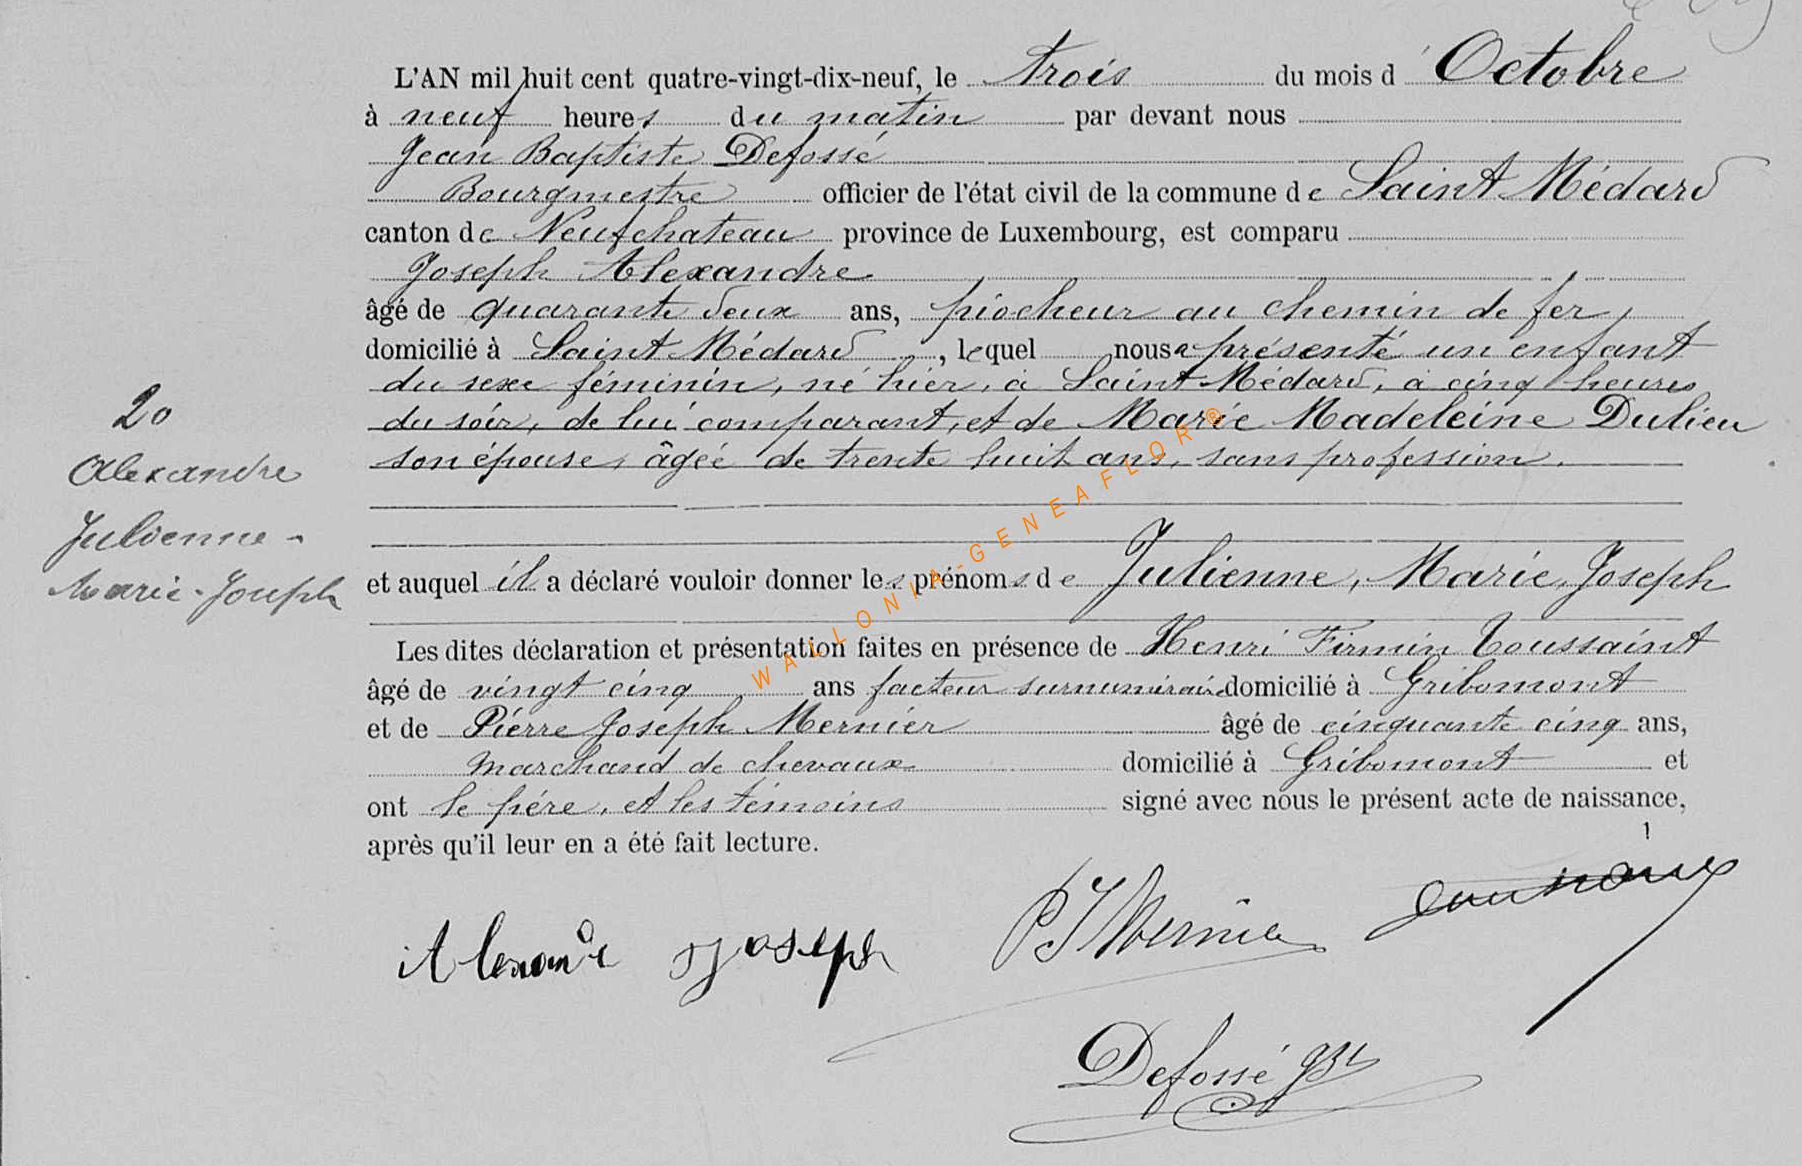 L'AN mil huit cent quatre-vingt-dix-neuf, le trois du mois d' Octobre
à neuf heures du matin par devant nous
Jean Baptiste Defossé
Bourgmestre officier de l'état civil de la commune de Saint Médard
canton de Neufchateau province de Luxembourg, est comparu
Joseph Alexandre
âgé de quarante deux ans, piocheur au chemin de fer,
domicilié à Saint Médard, lequel nous a présenté un enfant
du sexe féminin, né hier, à Saint-Médard, à cinq heures
du soir, de lui comparant, et de Marie Madeleine Dulieu
son épouse, âgée de trente huit ans, sans profession.
20
Alexandre
Julienne -
Marie-Joseph
et auquel il a déclaré vouloir donner les prénoms de Julienne, Marie, Joseph
Les dites déclaration et présentation faites en présence de Henri Firmin Toussaint
âgé de vingt cinq ans facteur surnuméraire domicilié à Gribomont
et de Pierre Joseph Mernier âgé de cinquante cinq ans,
marchand de chevaux domicilié à Gribomont et
ont le père, et les témoins signé avec nous le présent acte de naissance,
après qu'il leur en a été fait lecture.
Alexandre Joseph PJ Mernier
Defossé
WALLONIA-GENEAFLOR®